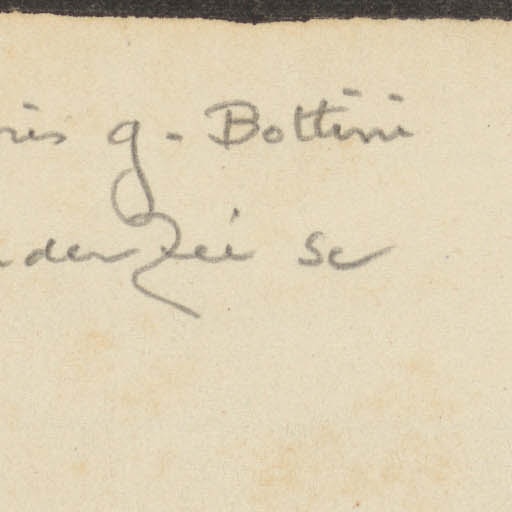 ris g. Bottini
der Zee sc